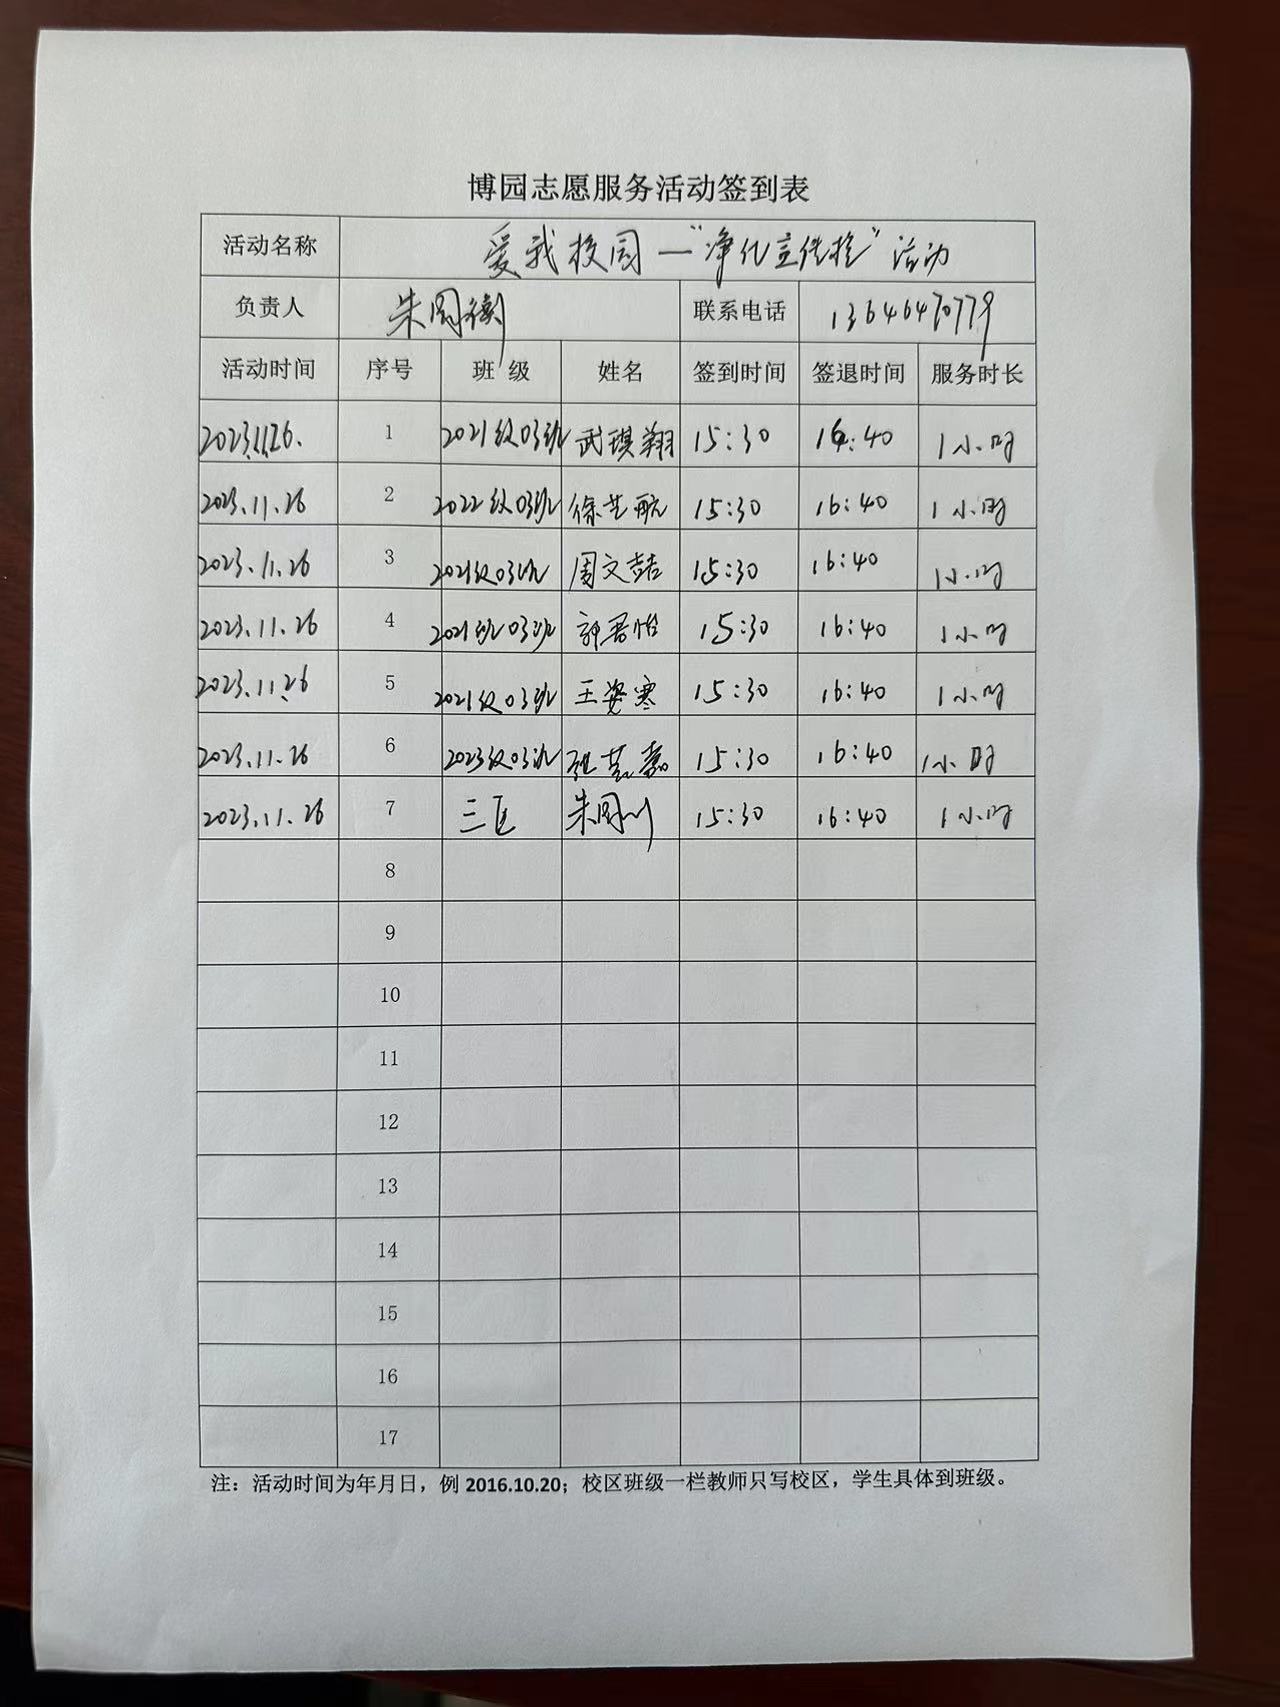 博园志愿服务活动签到表
活动名称 爱我校园—"净化宣传栏"活动
负责人 朱国 联系电话 13646470779
活动时间 序号 班 级 姓名 签到时间 签退时间 服务时长
2023.11.26. 1 2021级03班 武琪翔 15:30 16:40 1小时
2023.11.26 2 2022级03班 徐艺航 15:30 16:40 1小时
2023.11.26 3 2021级03班 周文喆 15:30 16:40 1小时
2023.11.26 4 2021级03班 郭君怡 15:30 16:40 1小时
2023.11.26 5 2021级03班 王姿寒 15:30 16:40 1小时
2023.11.26 6 2023级03班 张艺嘉 15:30 16:40 1小时
2023.11.26 7 三区 朱国 15:30 16:40 1小时
8
9
10
11
12
13
14
15
16
17
注：活动时间为年月日，例 2016.10.20；校区班级一栏教师只写校区，学生具体到班级。